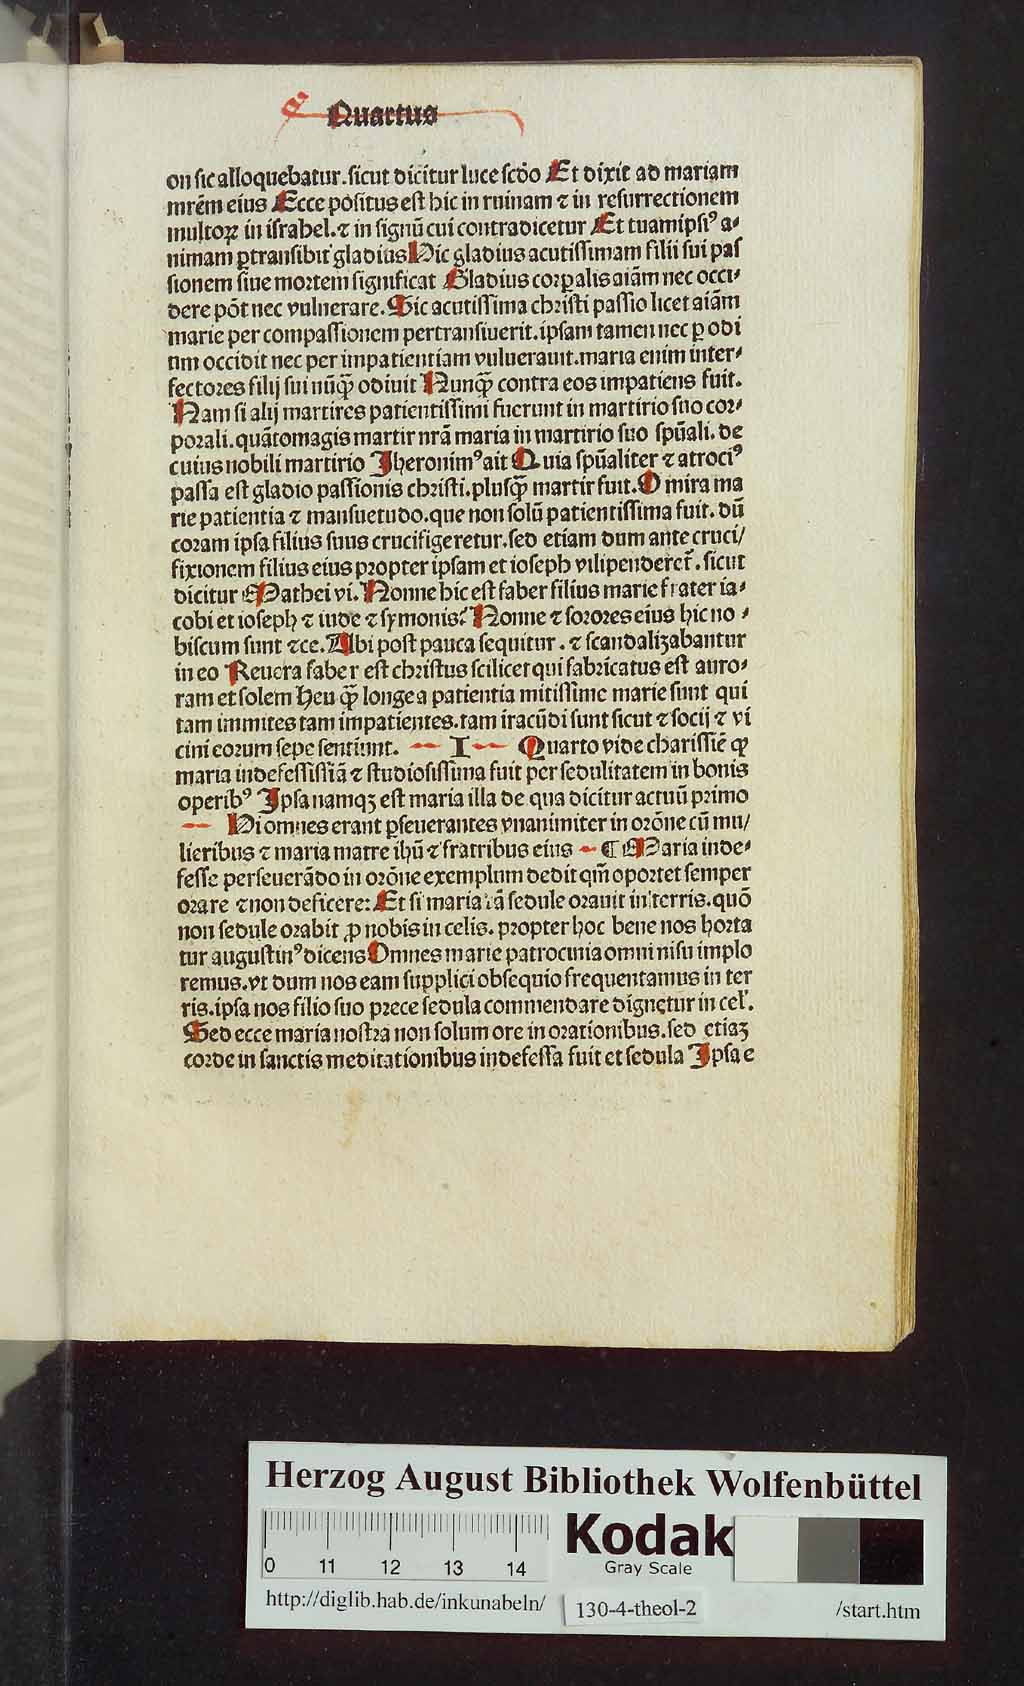 Quartus
on sic alloquebatur.sicut dicitur luce scdo Et dixit ad mariam
mrēm eius Ecce positus est hic in ruinam ⁊ in resurrectionem
multoꝝ in israhel.⁊ in signū cui contradicetur Et tuamipsiꝰ a-
nimam ꝑtransibit gladius Hic gladius acutissimam filii sui pas
sionem siue mortem significat Gladius corꝑalis aīam nec occi-
dere pōt nec vulnerare.Sic acutissima christi passio licet aīam
marie per compassionem pertransiuerit.ipsam tamen nec ꝑ odi
um occidit nec per impatientiam vulnerauit.maria enim inter-
fectores filij sui nūꝙ̄ odiuit Nunꝙ̄ contra eos impatiens fuit.
Nam si alij martires patientissimi fuerunt in martirio suo cor-
porali.quātomagis martir nrā maria in martirio suo spūali.de
cuius nobili martirio Jheronimꝰ ait Quia spūaliter ⁊ atrociꝰ
passa est gladio passionis christi.plusꝙ̄ martir fuit.O mira ma
rie patientia ⁊ mansuetudo.que non solū patientissima fuit.dū
coram ipsa filius suus crucifigeretur.sed etiam dum ante cruci/
fixionem filius eius propter ipsam et ioseph vilipenderet̄.sicut
dicitur Mathei vi.Nonne hic est faber filius marie frater ia-
cobi et ioseph ⁊ iude ⁊ symonis? Nonne ⁊ sorores eius hic no-
biscum sunt ⁊ce.Ubi post pauca sequitur.⁊ scandalizabantur
in eo Reuera faber est christus scilicet qui fabricatus est auro-
ram et solem Heu ꝙ̄ longe a patientia mitissime marie sunt qui
tam immites tam impatientes.tam iracūdi sunt sicut ⁊ socij ⁊ vi
cini eorum sepe sentiunt. I Quarto vide charissiē ꝙ
maria indefessissīā ⁊ studiosissima fuit per sedulitatem in bonis
operibꝰ Ipsa namqꝫ est maria illa de qua dicitur actuū primo
Hi omnes erant ꝑseuerantes vnanimiter in orōne cū mu/
lieribus ⁊ maria matre ihū ⁊ fratribus eius ¶ Maria inde-
fesse perseuerādo in orōne exemplum dedit qm̄ oportet semper
orare ⁊ non deficere: Et si maria tā sedule orauit in terris.quō
non sedule orabit ꝓ nobis in celis.propter hoc bene nos horta
tur augustinꝰ dicens Omnes marie patrocinia omni nisu implo
remus.vt dum nos eam supplici obsequio frequentamus in ter
ris.ipsa nos filio suo prece sedula commendare dignetur in cel'.
Sed ecce maria nostra non solum ore in orationibus.sed etiaꝫ
corde in sanctis meditationibus indefessa fuit et sedula Ipsa e
Herzog August Bibliothek Wolfenbüttel
0 11 12 13 14
Kodak
Gray Scale
http://diglib.hab.de/inkunabeln/ 130-4-theol-2 /start.htm